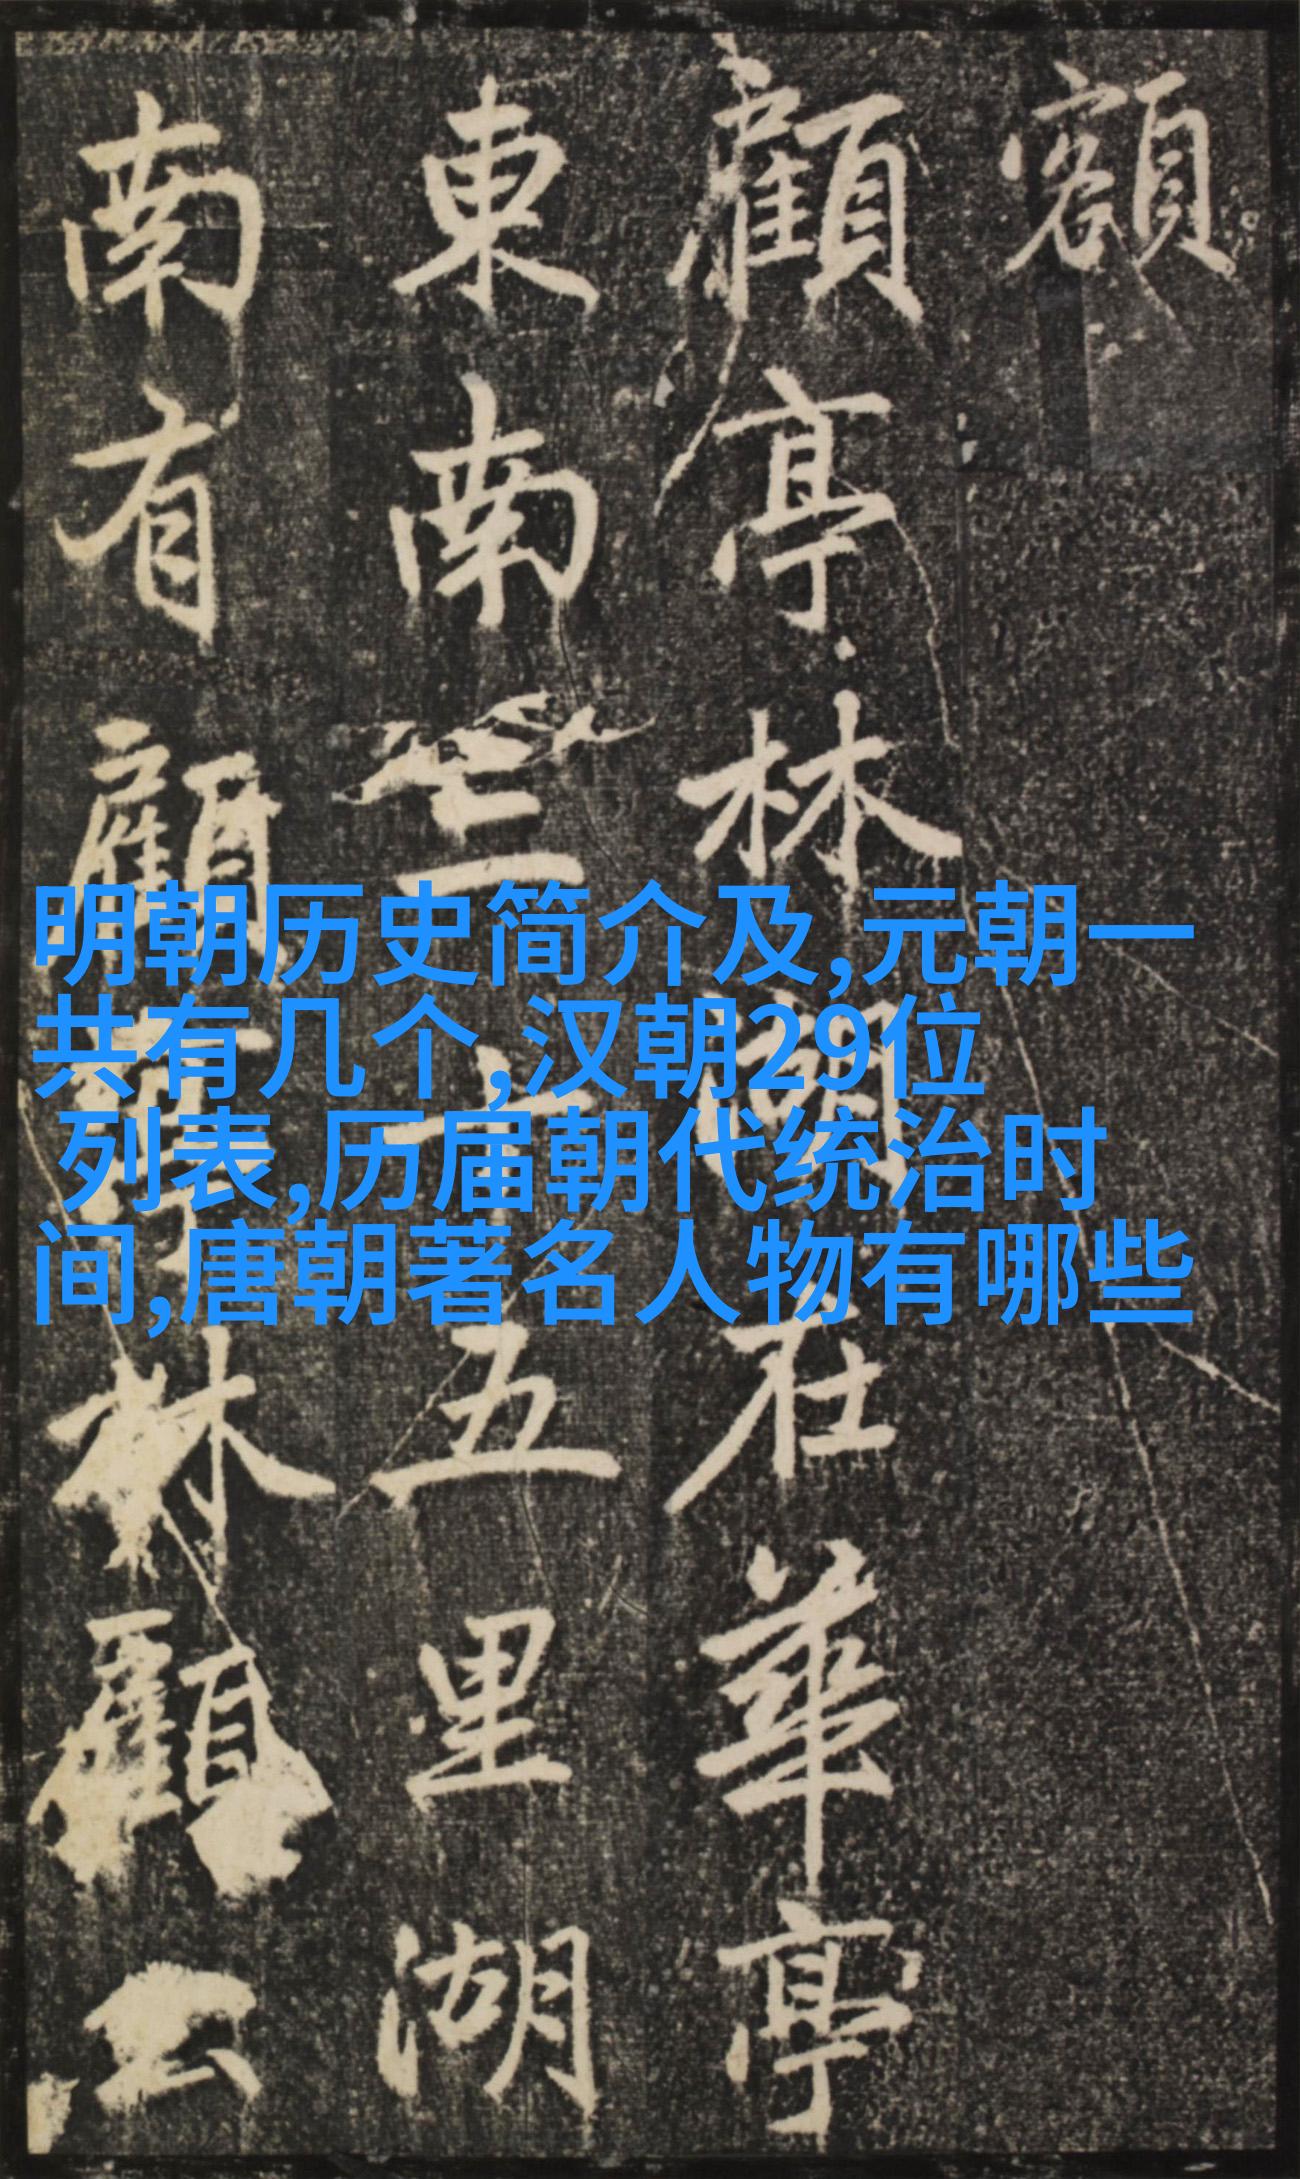 額
顧亭林湖在華亭
東南三十五里湖
南有顧亭林顧公
明朝历史简介及,元朝一
共有几个,汉朝29位
列表,历届朝代统治时
间,唐朝著名人物有哪些